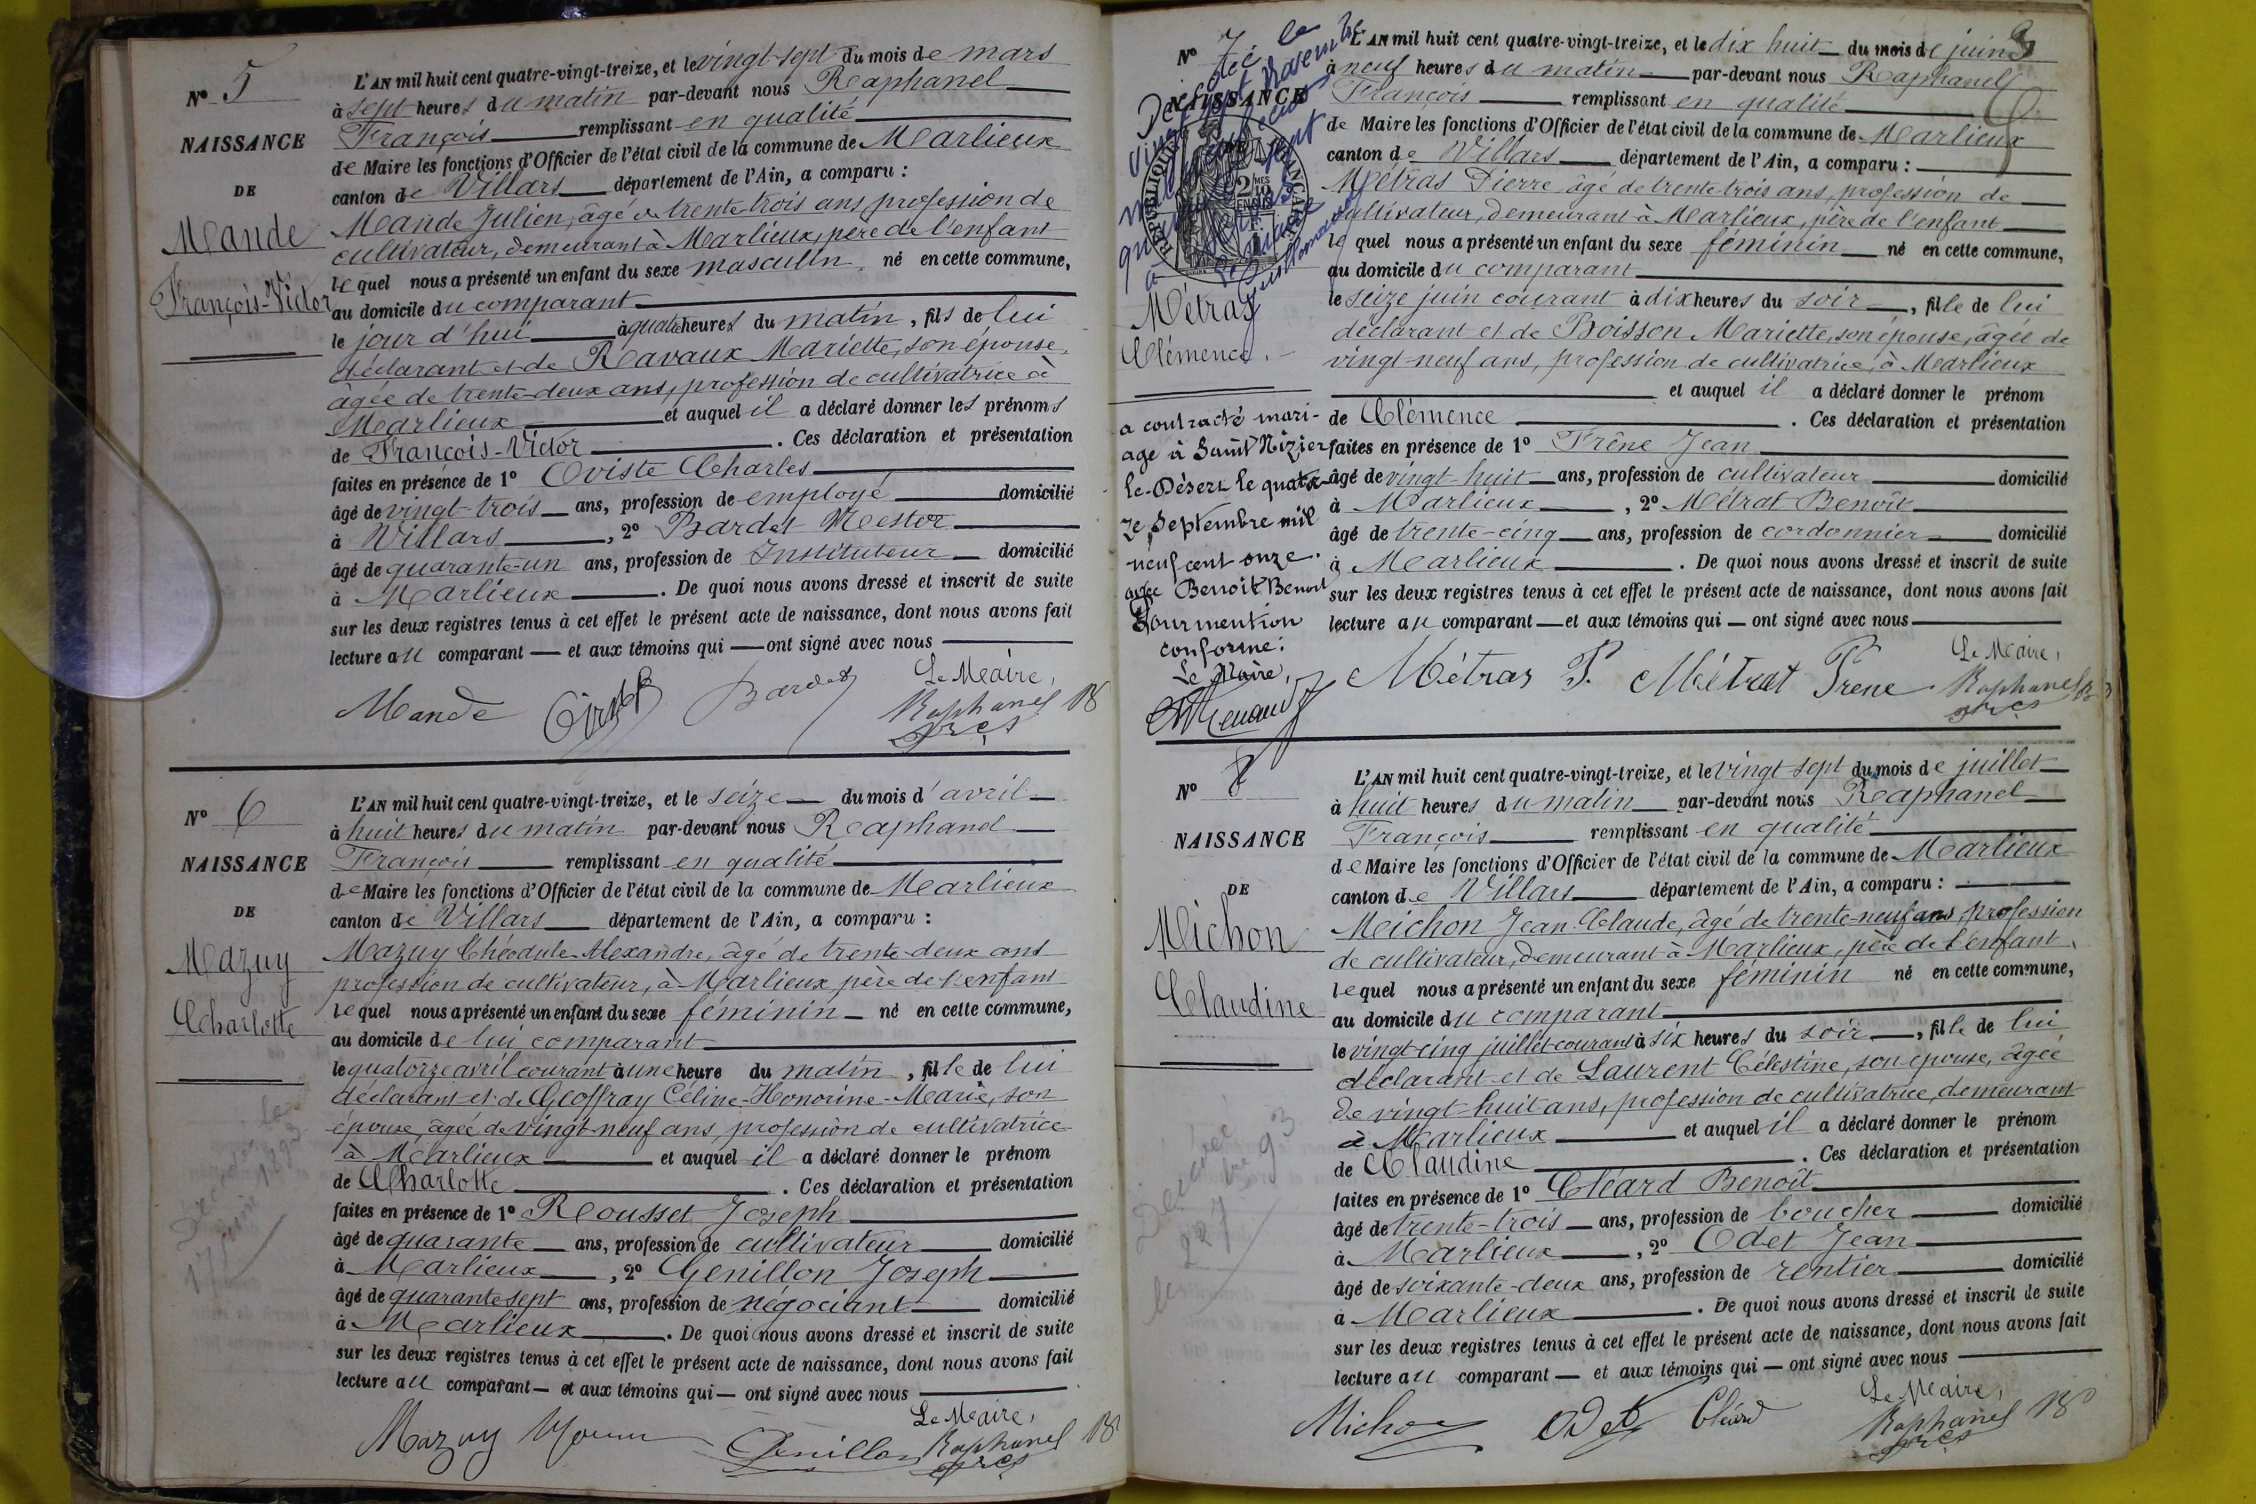 N° 5
NAISSANCE
DE
Mande
François-Victor
L'AN mil huit cent quatre-vingt-treize, et le vingt-sept du mois de mars
à sept heures du matin par-devant nous Raphanel
François remplissant en qualité
de Maire les fonctions d'Officier de l'état civil de la commune de Marlieux
canton de Villars département de l'Ain, a comparu :
Mande Julien, âgé de trente-trois ans, profession de
cultivateur, demeurant à Marlieux, père de l'enfant
lequel nous a présenté un enfant du sexe masculin né en cette commune,
au domicile du comparant
le jour d'hui à quatre heures du matin, fils de lui
déclarant et de Ravaux Mariette, son épouse,
âgée de trente-deux ans, profession de cultivatrice à
Marlieux et auquel il a déclaré donner les prénoms
de François-Victor. Ces déclaration et présentation
faites en présence de 1° Oviste Charles
âgé de vingt-trois ans, profession de employé domicilié
à Villars, 2° Bardet Nestor
âgé de quarante-un ans, profession de Instituteur domicilié
à Marlieux. De quoi nous avons dressé et inscrit de suite
sur les deux registres tenus à cet effet le présent acte de naissance, dont nous avons fait
lecture au comparant et aux témoins qui ont signé avec nous
Le Maire,
Mande Bardet Raphanel
N° 6
NAISSANCE
DE
Mazuy
Charlotte
Décédée le
17 juin 1893
L'AN mil huit cent quatre-vingt-treize, et le seize du mois d'avril
à huit heures du matin par-devant nous Raphanel
François remplissant en qualité
de Maire les fonctions d'Officier de l'état civil de la commune de Marlieux
canton de Villars département de l'Ain, a comparu :
Mazuy Théodule-Alexandre, âgé de trente-deux ans
profession de cultivateur, à Marlieux, père de l'enfant
lequel nous a présenté un enfant du sexe féminin né en cette commune,
au domicile de lui comparant
le quatorze avril courant à une heure du matin, fille de lui
déclarant et de Geoffray Céline-Honorine-Marie, son
épouse, âgée de vingt-neuf ans, profession de cultivatrice
à Marlieux et auquel il a déclaré donner le prénom
de Charlotte. Ces déclaration et présentation
faites en présence de 1° Rousset Joseph
âgé de quarante ans, profession de cultivateur domicilié
à Marlieux, 2° Genillon Joseph
âgé de quarante sept ans, profession de négociant domicilié
à Marlieux. De quoi nous avons dressé et inscrit de suite
sur les deux registres tenus à cet effet le présent acte de naissance, dont nous avons fait
lecture au comparant et aux témoins qui ont signé avec nous
Le Maire,
Mazuy Genillon Raphanel
N° 7
NAISSANCE
Métras
Clémence
a contracté mari-
age à Saint Nizier
le-Désert le quator-
ze Septembre mil
neuf cent onze.
avec Benoît Benoit
Pour mention
conforme:
Le Maire,
L'AN mil huit cent quatre-vingt-treize, et le dix huit du mois de juin
à neuf heures du matin par-devant nous Raphanel
François remplissant en qualité
de Maire les fonctions d'Officier de l'état civil de la commune de Marlieux
canton de Villars département de l'Ain, a comparu :
Métras Pierre âgé de trente-trois ans, profession de
cultivateur, demeurant à Marlieux, père de l'enfant
lequel nous a présenté un enfant du sexe féminin né en cette commune,
au domicile du comparant
le seize juin courant à dix heures du soir, fille de lui
déclarant et de Boisson Mariette, son épouse, âgée de
vingt-neuf ans, profession de cultivatrice, à Marlieux
et auquel il a déclaré donner le prénom
de Clémence. Ces déclaration et présentation
faites en présence de 1° Frêne Jean
âgé de vingt-huit ans, profession de cultivateur domicilié
à Marlieux, 2° Métrat Benoît
âgé de trente-cinq ans, profession de cordonnier domicilié
à Marlieux. De quoi nous avons dressé et inscrit de suite
sur les deux registres tenus à cet effet le présent acte de naissance, dont nous avons fait
lecture au comparant et aux témoins qui ont signé avec nous
Le Maire,
Métras P. Métrat Frene Raphanel
N° 8
NAISSANCE
DE
Michon
Claudine
L'AN mil huit cent quatre-vingt-treize, et le vingt-sept du mois de juillet
à huit heures du matin par-devant nous Raphanel
François remplissant en qualité
de Maire les fonctions d'Officier de l'état civil de la commune de Marlieux
canton de Villars département de l'Ain, a comparu :
Michon Jean-Claude, âgé de trente-neuf ans, profession
de cultivateur, demeurant à Marlieux, père de l'enfant,
lequel nous a présenté un enfant du sexe féminin né en cette commune,
au domicile du comparant
le vingt-cinq juillet courant à six heures du soir, fille de lui
déclarant et de Laurent Célestine, son épouse, âgée
de vingt-huit ans, profession de cultivatrice, demeurant
à Marlieux et auquel il a déclaré donner le prénom
de Claudine. Ces déclaration et présentation
faites en présence de 1° Cléard Benoît
âgé de trente-trois ans, profession de boucher domicilié
à Marlieux, 2° Odet Jean
âgé de soixante-deux ans, profession de rentier domicilié
à Marlieux. De quoi nous avons dressé et inscrit de suite
sur les deux registres tenus à cet effet le présent acte de naissance, dont nous avons fait
lecture au comparant et aux témoins qui ont signé avec nous
Le Maire,
Michon Odet Cléard Raphanel